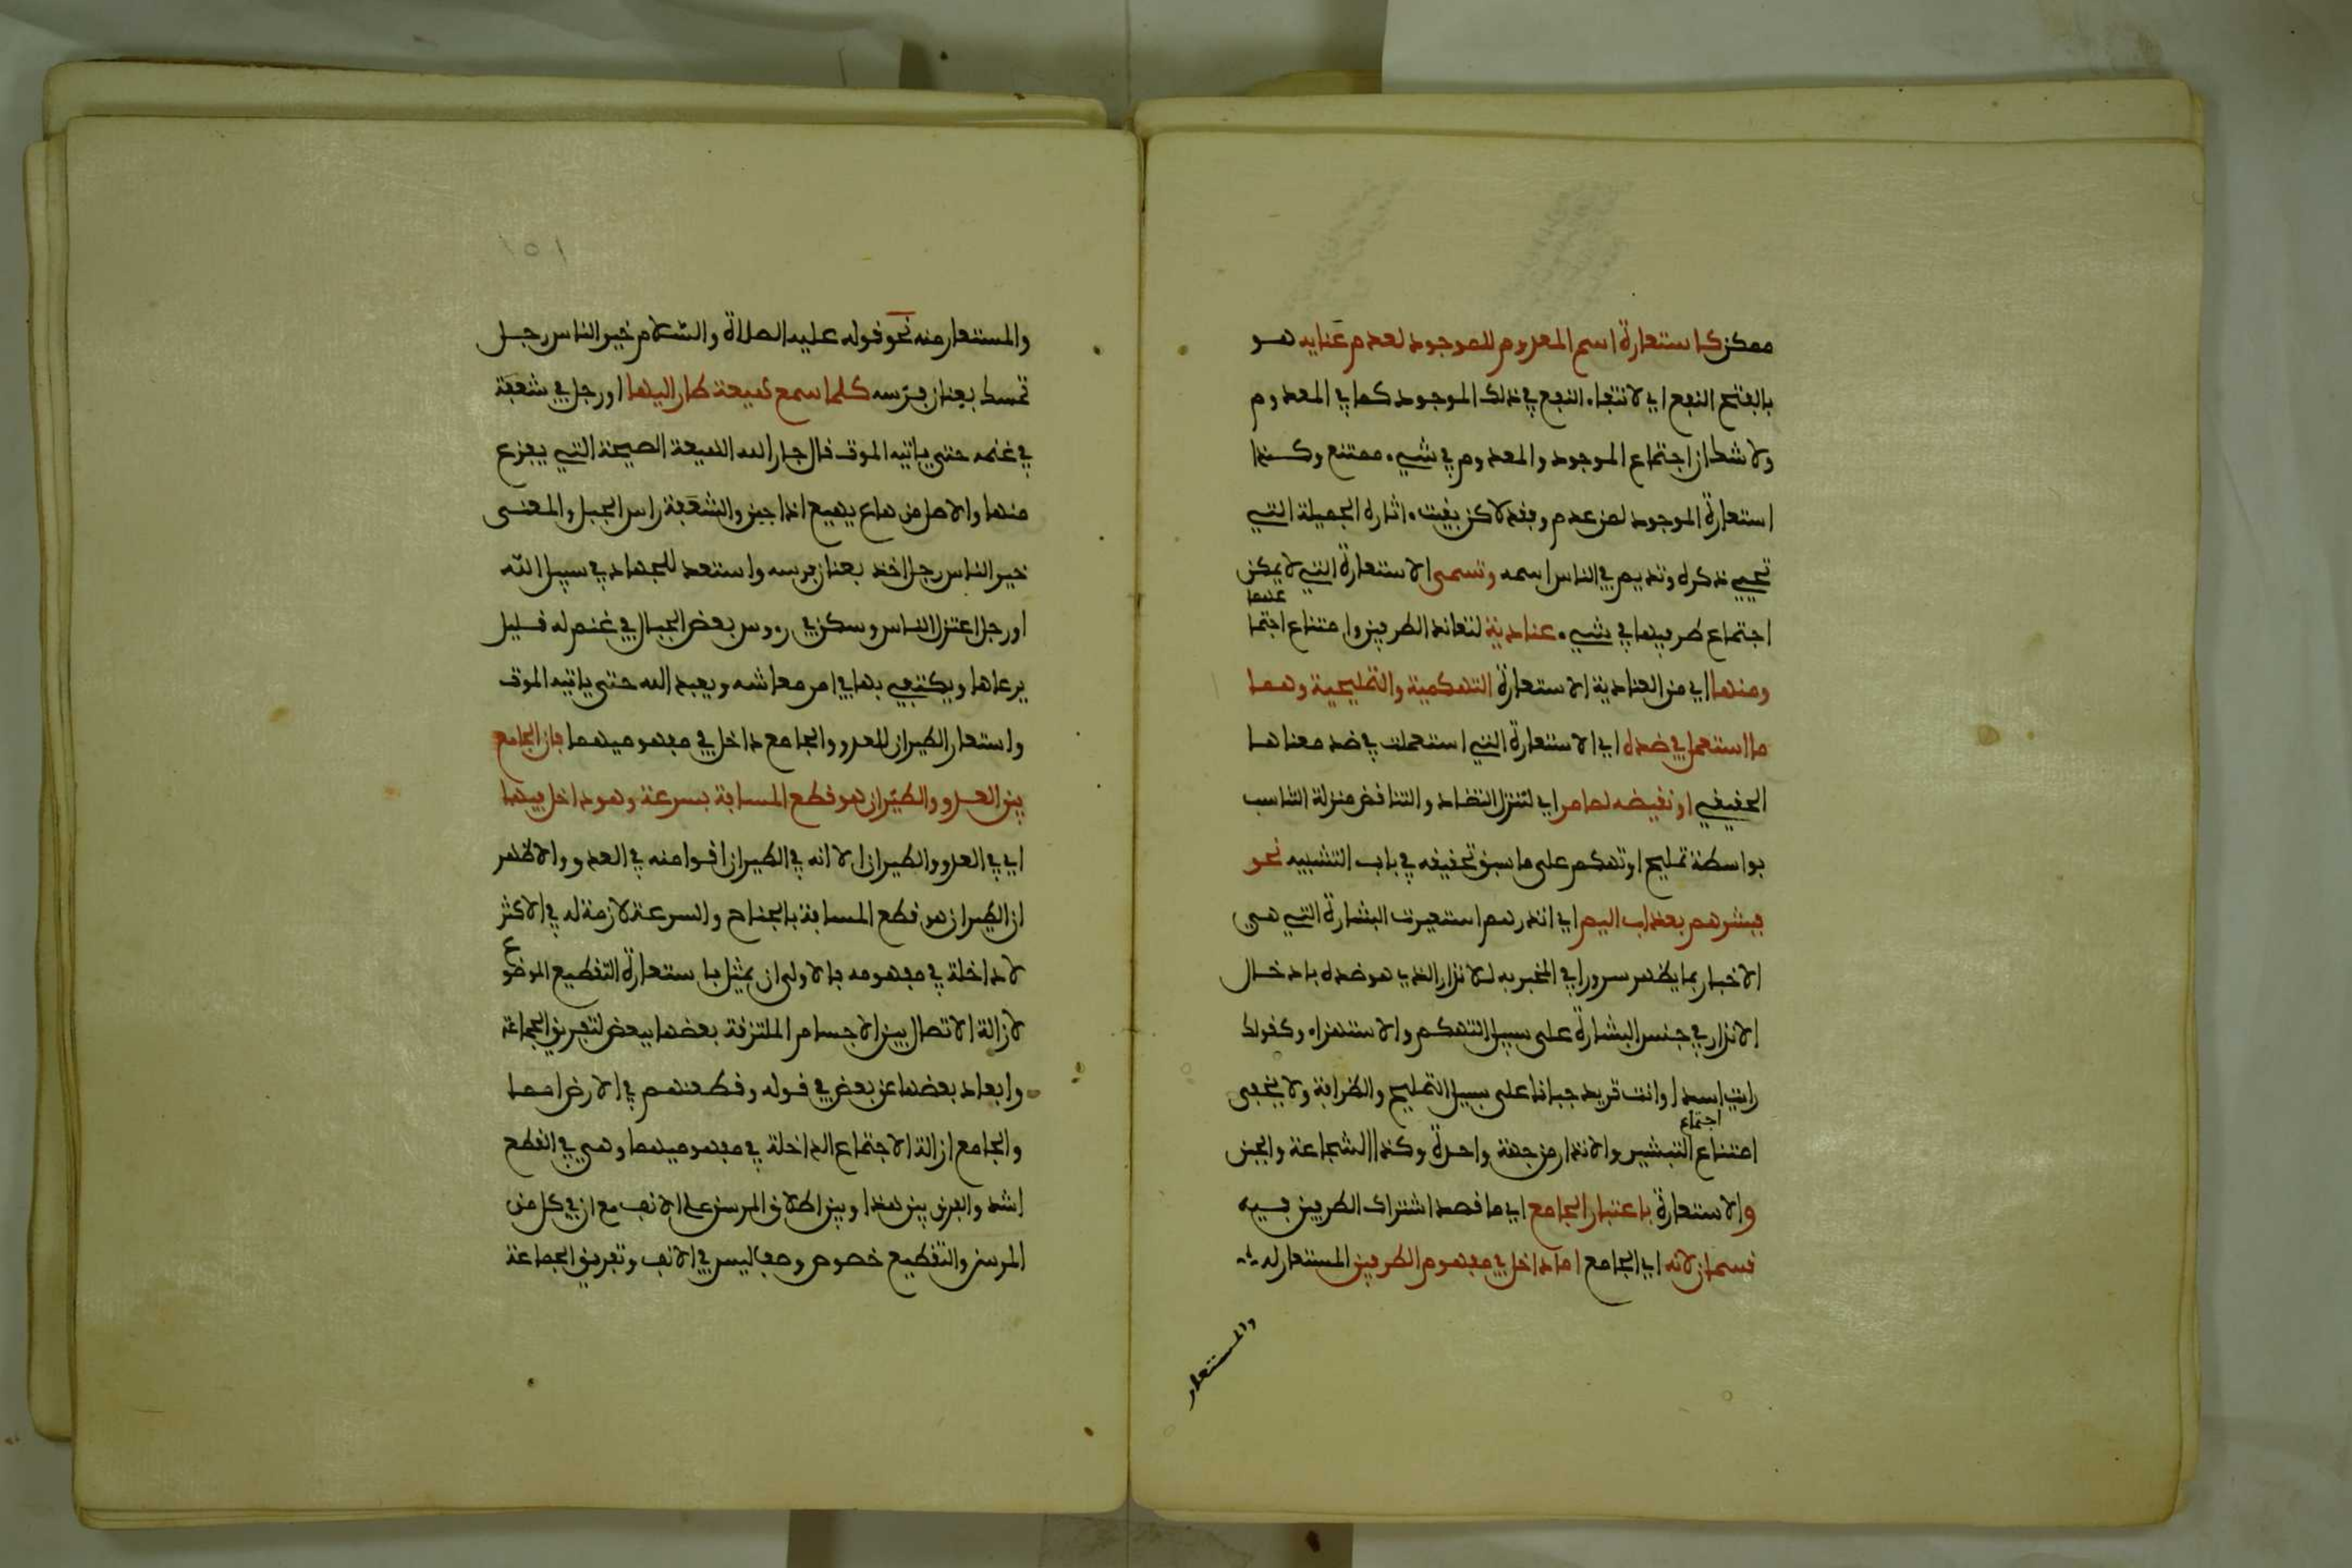 ممكن كاستعارة اسم المعدوم للموجود لعدم غنايه هو
بالفتح النفع اي لانتفاء النفع في ذلك الموجود كما في المعدوم
ولا شك ان اجتماع الموجود والمعدوم في شيء ممتنع وكذا
استعارة الموجود لمن عدم وفقد لاكن بقيت اثاره الجميلة التي
تحيي ذكره وتديم في الناس اسمه وتسمى الاستعارة التي لا يمكن
اجتماع طرفيها في شيء عنادية لتعاند الطرفين وامتناع اجتما
عهما
ومنها اي من العنادية الاستعارة التهكمية والتمليحية وهما
ما استعمل في ضده اي الاستعارة التي استعملت في ضد معناها
الحقيقي او نقيضه لما مر اي لتنزل التضاد والتناقض منزلة التناسب
بواسطة تمليح او تهكم على ما سبق تحقيقه في باب التشبيه نحو
فبشرهم بعذاب اليم اي انذرهم استعيرت البشارة التي هي
الاخبار بما يظهر سرورا في المخبر به للانذار الذي هو ضده بادخال
الانذار في جنس البشارة على سبيل التهكم والاستهزاء وكقولك
رايت اسدا وانت تريد جبانا على سبيل التمليح والظرافة ولا يخفى
امتناع اجتماع التبشير والانذار من جهة واحدة وكذا الشجاعة والجبن
والاستعارة باعتبار الجامع اي ما قصد اشتراك الطرفين فيه
قسمان لانه اي الجامع اما داخل في مفهوم الطرفين المستعار له
والمستعار
١٥١
والمستعار منه نحو قوله عليه الصلاة والسلام خير الناس رجل
تمسك بعنان فرسه كلما سمع هيعة طار اليها او رجل في شعفة
في غنمه حتى ياتيه الموت قال جار الله الهيعة الصيحة التي يفزع
منها والاصل من هاع يهيع اذا جبن والشعفة راس الجبل والمعنى
خير الناس رجل اخذ بعنان فرسه واستعد للجهاد في سبيل الله
او رجل اعتزل الناس وسكن في رءوس بعض الجبال في غنم له قليل
يرعاها ويكتفي بها في امر معاشه ويعبد الله حتى ياتيه الموت
واستعار الطيران للعدو والجامع داخل في مفهوميهما فان الجامع
بين العدو والطيران هو قطع المسافة بسرعة وهو داخل فيهما
اي في العدو والطيران الا انه في الطيران اقوا منه في العدو والاظهر
ان الطيران هو قطع المسافة بالجناح والسرعة لازمة له في الاكثر
لا داخلة في مفهومه فالاولى ان يمثل باستعارة التقطيع الموضوع
لازالة الاتصال بين الاجسام الملتزقة بعضها ببعض لتفريق الجماعة
وابعاد بعضها عن بعض في قوله وقطعنهم في الارض امما
والجامع ازالة الاجتماع الداخلة في مفهوميهما وهي في القطع
اشد والفرق بين هذا وبين اطلاق المرسن على الانف مع ان في كل من
المرسن والتقطيع خصوص وصف ليس في الانف وتفريق الجماعة